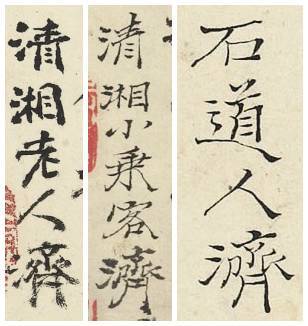 清湘老人濟
清湘小乘客濟
石道人濟